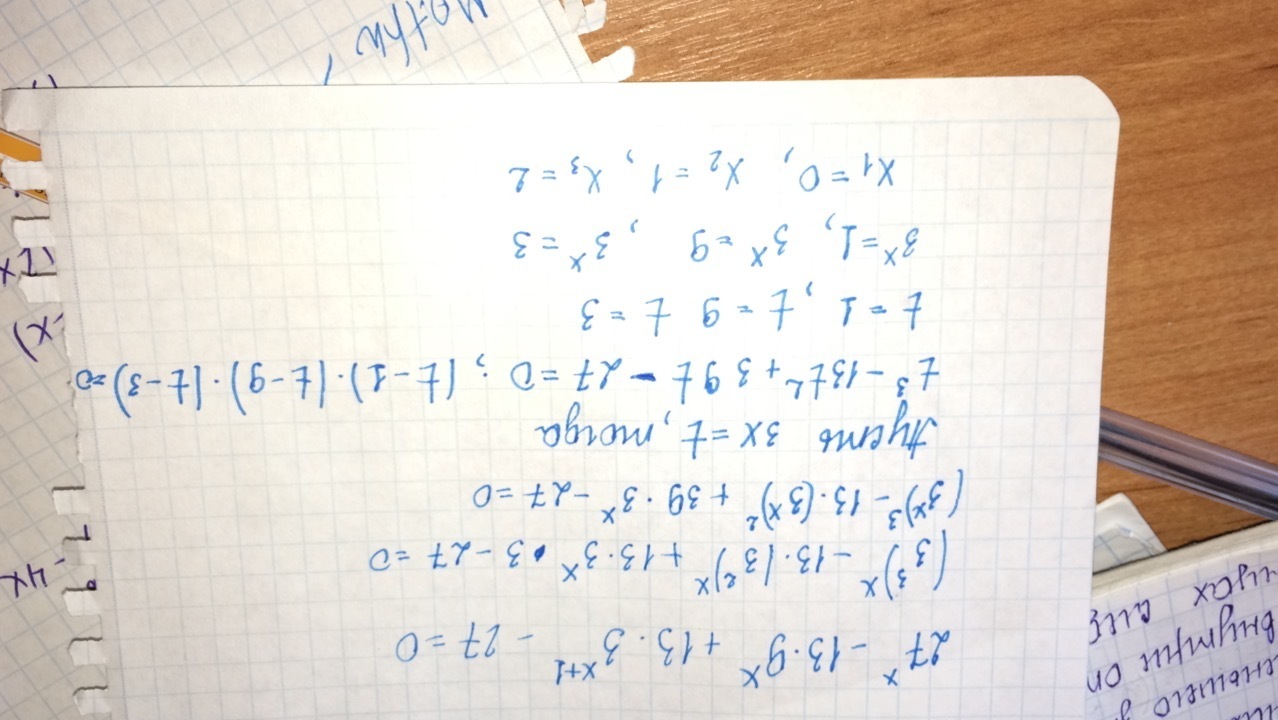 27ˣ - 13·9ˣ + 13·3ˣ⁺¹ - 27 = 0
(3³)ˣ - 13·(3²)ˣ + 13·3ˣ·3 - 27 = 0
(3ˣ)³ - 13·(3ˣ)² + 39·3ˣ - 27 = 0
Пусть 3x = t, тогда
t³ - 13t² + 39t - 27 = 0 ; (t-1)·(t-9)·(t-3)=0
t = 1 , t = 9 t = 3
3ˣ = 1, 3ˣ = 9 , 3ˣ = 3
x₁ = 0, x₂ = 1, x₃ = 2
-4x
-x)
внутри